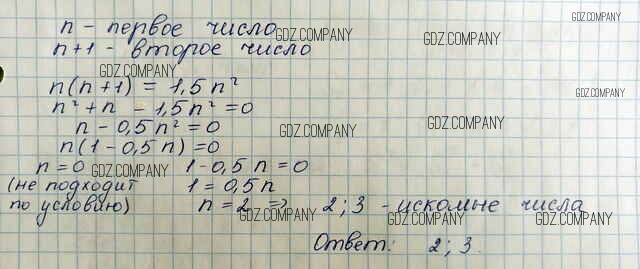 n - первое число
n+1 - второе число
n(n+1) = 1,5 n²
n² + n - 1,5 n² = 0
n - 0,5 n² = 0
n(1 - 0,5 n) = 0
n = 0 1 - 0,5 n = 0
(не подходит 1 = 0,5 n
по условию) n = 2 => 2; 3 - искомые числа
Ответ: 2; 3.
GDZ.COMPANY
GDZ.COMPANY
GDZ.COMPANY
GDZ.COMPANY
GDZ.COMPANY
GDZ.COMPANY
GDZ.COMPANY
GDZ.COMPANY
GDZ.COMPANY
GDZ.COMPANY
GDZ.COMPANY